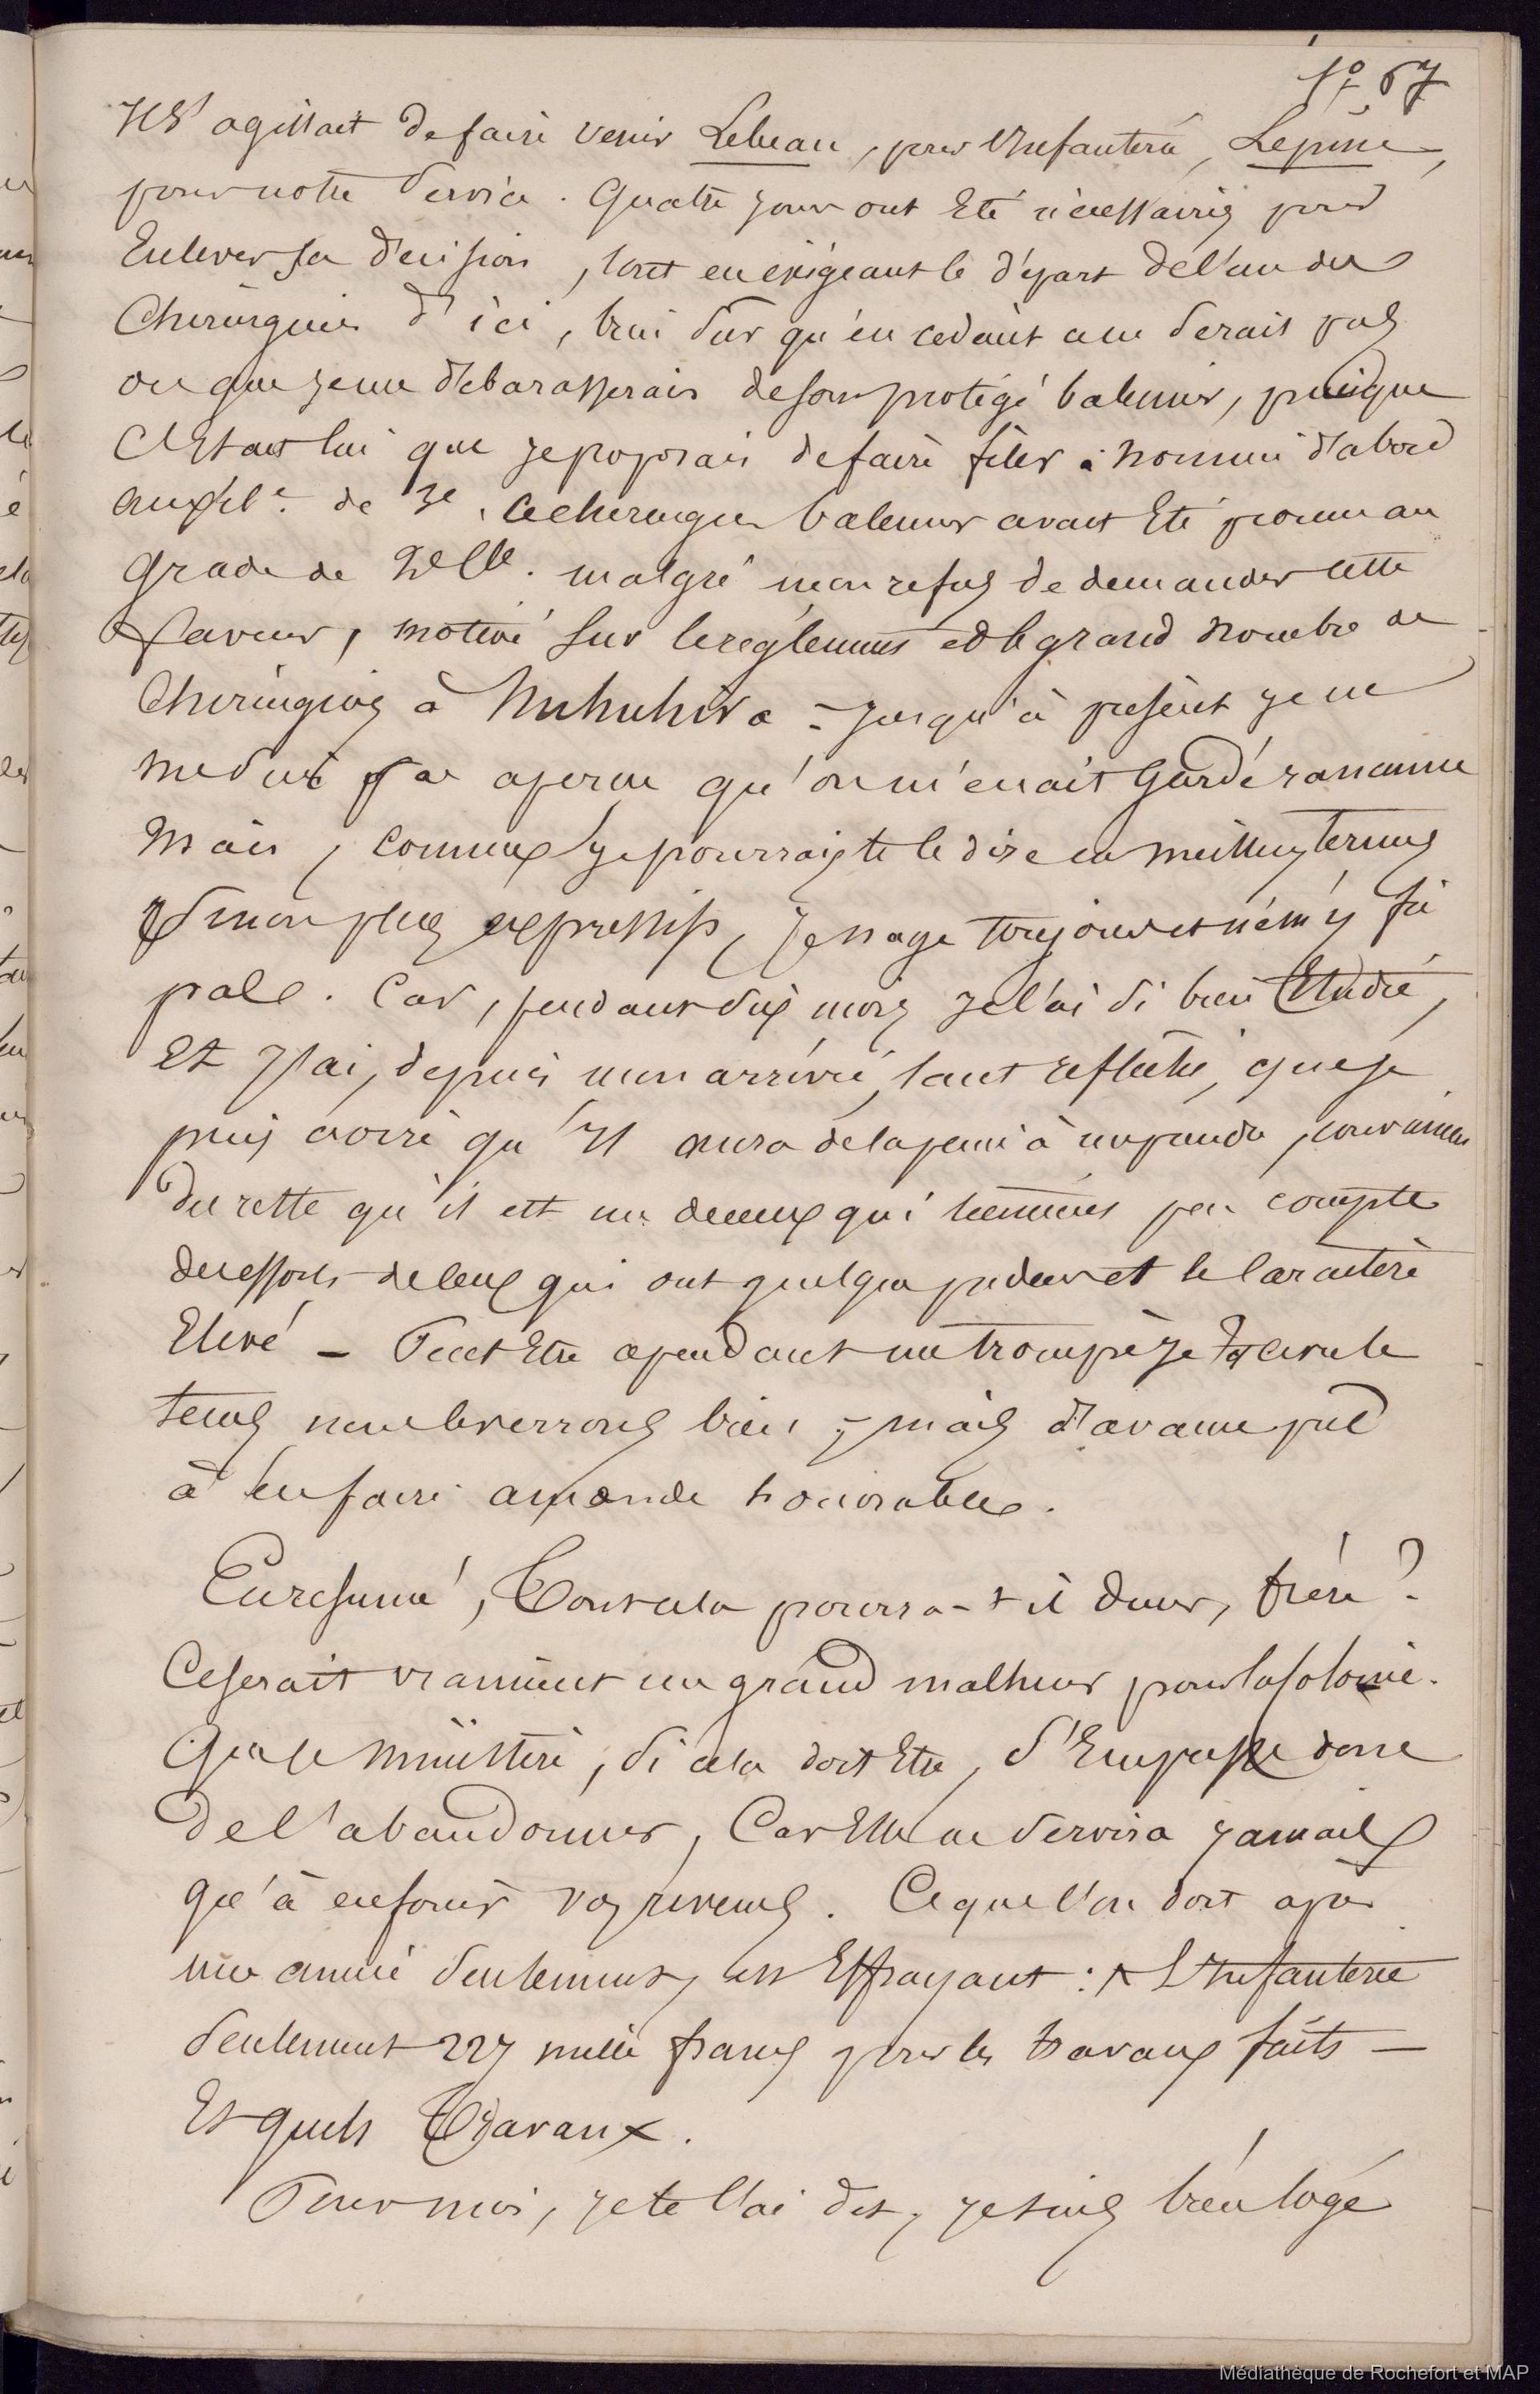 f° 67
Il S'agissait de faire venir Lebeau, pour l'Infanterie, Lepine,
pour notre Service. Quatre jours ont Eté nécessaires pour
Enlever sa décision, tout en exigeant le départ de l'un des
Chirurgiens d'ici, bien Sur qu'en cedant ce ne Serait pas
ou que je me débarasserais de son protégé balemier, puisque
C'Etait lui que je proposais de faire filer : Nommé d'abord
auxil.re de 3e, ce chirurgien balemier avait Eté promu au
Grade de 2e Clle. malgré mon refus de demander cette
faveur, motivé Sur le règlement et le grand nombre de
Chirurgiens à Nukuhiva - Jusqu'à présent je ne
me Suis pas aperçu qu'on m'en ait Gardé rancune
Mais, comme je pourrais te le dire en meilleurs termes
Sinon plus expressifs, je nage toujours et ne m'y fie
pas. Car, pendant Six mois je l'ai Si bien Etudié,
Et J'ai, depuis mon arrivée, tant réfléchi, que je
puis croire qu'Il aura de la peine à me prendre, convaincu
du reste qu'il est un de ceux qui tiennent peu compte
des efforts de ceux qui ont quelque pudeur et le Caractère
Elevé - Peut Etre cependant me trompè-je Et avec le
tems nous le verrons bien ; mais d'avance prêt
à lui faire amande honorable.
En resumé, Tout cela pourra-t-il durer, frère ?
Ce serait vraiment un grand malheur pour la Colonie.
Que le Ministère, Si cela doit Etre, S'Empresse donc
De l'abandonner, Car Elle ne Servira jamais
qu'à enfouir vos revenus. Ce que l'on doit après
une année Seulement, est Effrayant : A L'Infanterie
Seulement 227 mille francs pour les travaux faits -
Et quels Travaux.
Pour moi, je te l'ai dit, je suis bien logé
Médiathèque de Rochefort et MAP